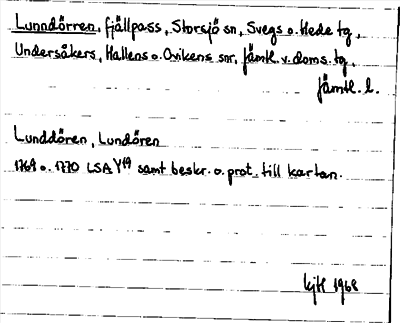 Lunndörren, fjällpass, Storsjö sn, Svegs o. Hede tg,
Undersåkers, Hallens o. Ovikens snr, Jämtl. v. doms. tg,
Jämtl. l.
Lunddören, Lundören
1769 o. 1770 LSA Y19 samt beskr. o. prot. till kartan.
1968